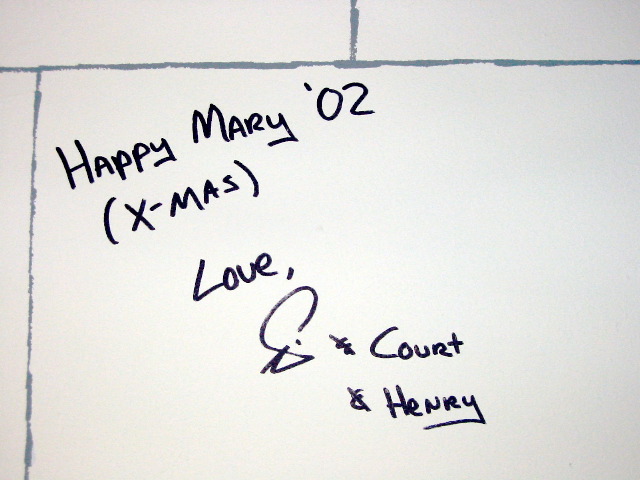 HAPPY MARY '02
(X-MAS)
Love,
& Court
& HENRY